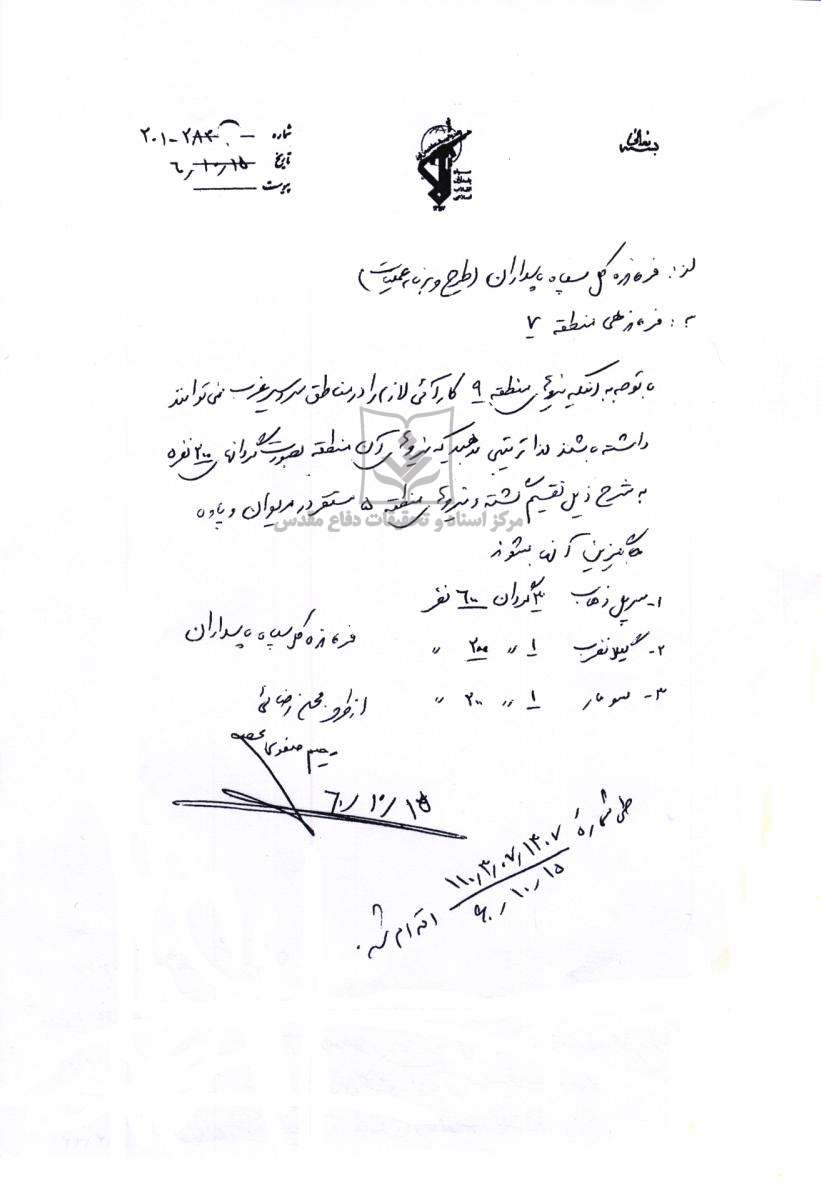 بسمه تعالی
شماره ۲۰۱-۲۸۴
تاریخ ۶۰/۱۰/۱۵
پیوست
از: فرمانده کل سپاه پاسداران (طرح و برنامه عملیات)
به: فرماندهی منطقه ۷
با توجه به اینکه نیروهای منطقه ۹ کارآئی لازم را در مناطق سردسیر غرب نمی توانند
داشته باشند لذا ترتیبی بدهید که نیروهای آن منطقه بصورت گردانهای ۲۰۰ نفره
به شرح ذیل تقسیم گشته و نیروهای منطقه ۵ مستقر در مریوان و پاوه
جایگزین آنها بشوند
مرکز اسناد و تحقیقات دفاع مقدس
۱- سرپل ذهاب ۳ گردان ۶۰۰ نفر
۲- گیلانغرب ۱ " ۲۰۰ "
۳- سومار ۱ " ۲۰۰ "
فرمانده کل سپاه پاسداران
از طرف محسن رضائی
رحیم صفوی
۶۰/۱۰/۱۵
طی شماره ۱۱۰/۳/۰۷/۱۴۰۷
۶۰/۱۰/۱۵
اقدام شد.